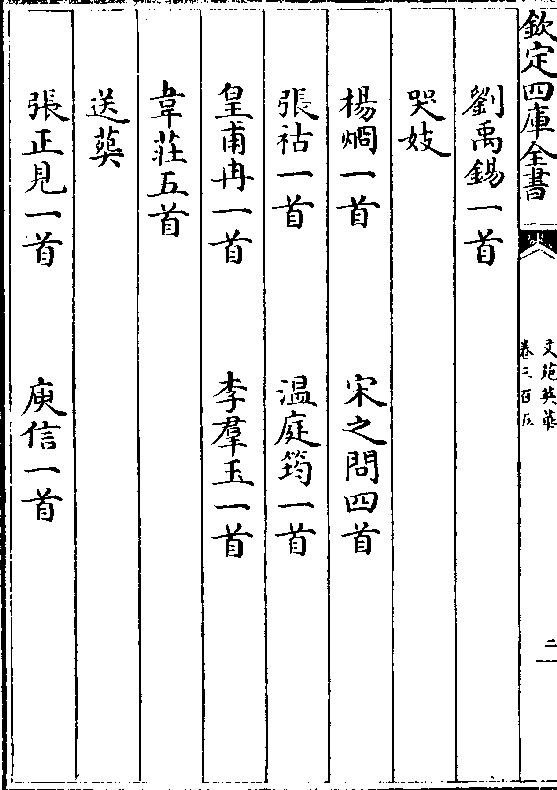 欽定四庫全書
文苑英華
卷三百五
二
劉禹錫一首
哭妓
楊烱一首 宋之問四首
張祜一首 温庭筠一首
皇甫冉一首 李羣玉一首
韋莊五首
送葬
張正見一首 庾信一首